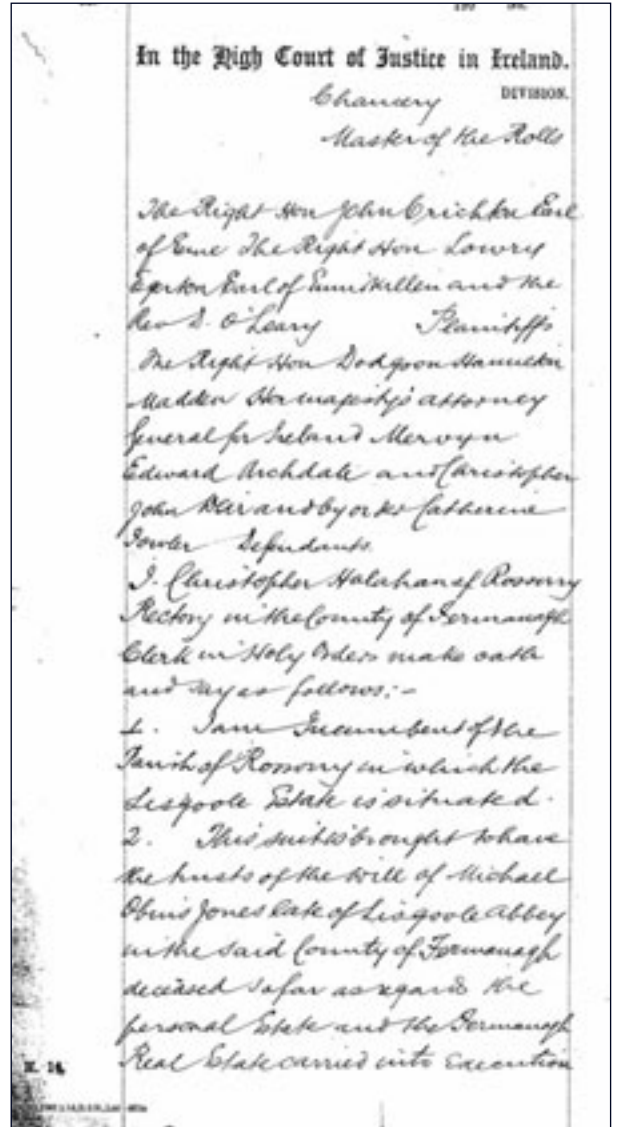 In the High Court of Justice in Ireland.
Chancery DIVISION.
Master of the Rolls
The Right Hon John Crichton Earl
of Erne The Right Hon Lowry
Egerton Earl of Enniskillen and the
Rev D. O'Leary Plaintiffs
The Right Hon Dodgson Hamilton
Madden Her majesty's attorney
General for Ireland Mervyn
Edward Archdale and Christopher
John and by order Catherine
Defendants
I. Christopher Halahan of Rossorry
Rectory in the County of Fermanagh
Clerk in Holy Orders make oath
and say as follows:-
1. I am Incumbent of the
Parish of Rossorry in which the
Lisgoole Estate is situated.
2. This suit is brought to have
the trusts of the will of Michael
Obins Jones late of Lisgoole Abbey
in the said County of Fermanagh
deceased so far as regards the
personal Estate and the Fermanagh
Real Estate carried into execution
H. 14.